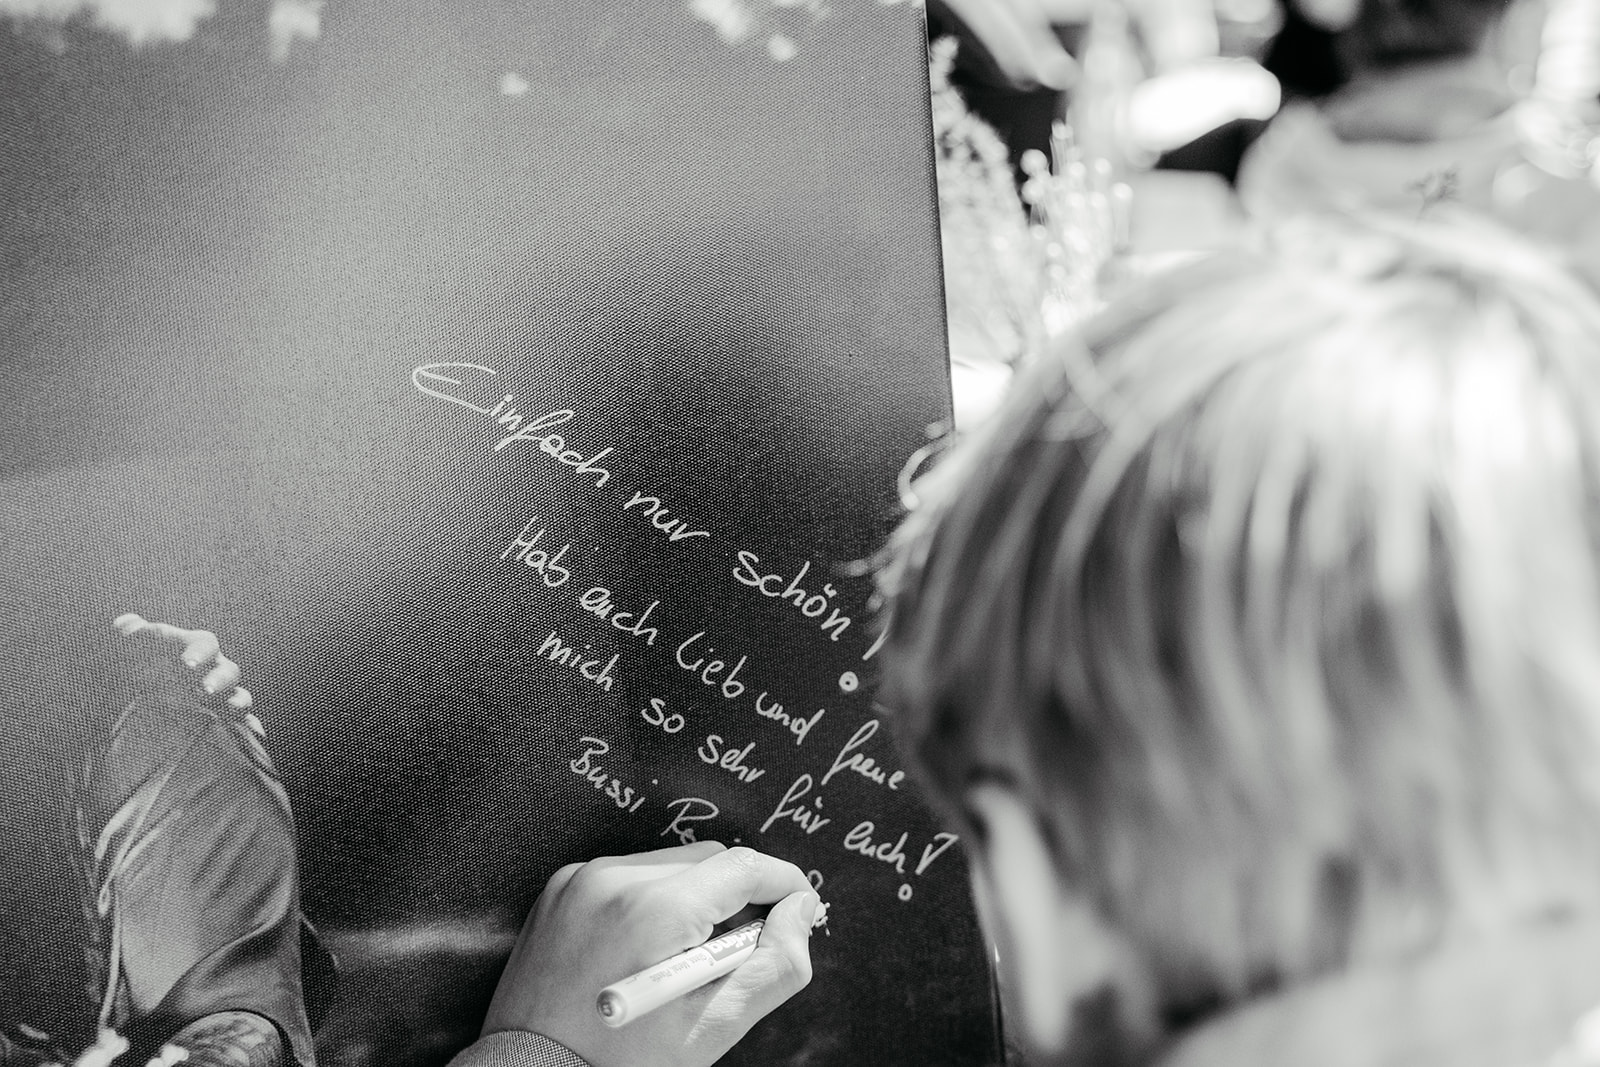 Einfach nur schön!
Hab euch lieb und freue
mich so sehr für euch!
Bussi
edding